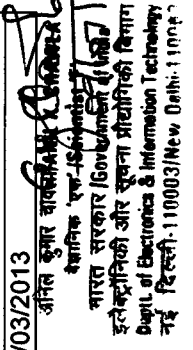 /03/2013
अनिल कुमार
वैज्ञानिक 'एफ'/Scientist
भारत सरकार/Government of India
इलैक्ट्रॉनिकी और सूचना प्रौद्योगिकी विभाग
Deptt. of Electronics & Information Technology
नई दिल्ली-110003/New Delhi-11000